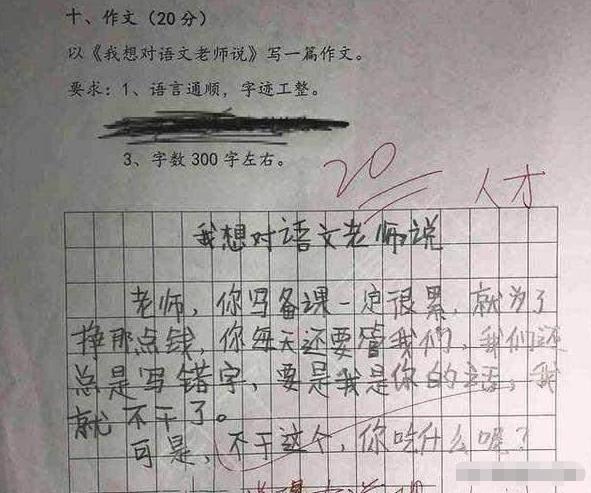 十、作文（20分）
以《我想对语文老师说》写一篇作文。
要求：1、语言通顺，字迹工整。
3、字数300字左右。
20 人才
我想对语文老师说
老师，你写备课一定很累，就为了
挣那点钱，你每天还要管我们，我们还
总是写错字，要是我是你的话，我
就不干了。
可是，不干这个，你吃什么呢？